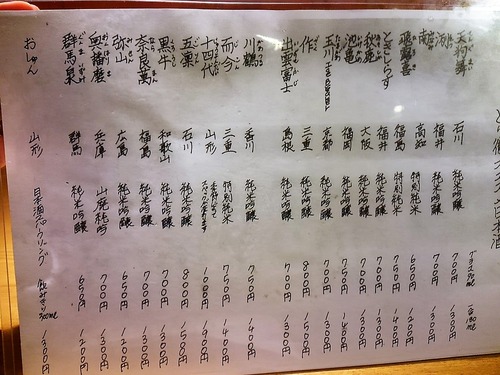 天狗舞 石川 純米吟醸 700円 1300円
福井 純米吟醸 700円 1300円
南 高知 特別純米 650円 1200円
飛露喜 福島 特別純米 750円 1400円
福井 純米吟醸 700円 1300円
秋鹿 大阪 純米吟醸 700円 1300円
池亀 福岡 純米吟醸 750円 1400円
玉川 京都 純米吟醸 700円 1300円
作 三重 純米吟醸 800円 1500円
出雲富士 島根 純米吟醸 700円 1300円
川鶴 香川 純米吟醸 750円 1400円
而今 三重 特別純米 750円 1400円
十四代 山形 1000円 1900円
五凛 石川 純米吟醸 800円 1500円
黒牛 和歌山 純米吟醸 700円 1300円
奈良萬 福島 純米吟醸 700円 1300円
弥山 広島 純米吟醸 650円 1200円
奥播磨 兵庫 山廃純吟 700円 1300円
群馬泉 群馬 純米吟醸 650円 1200円
おしゅん 山形 日本酒スパークリング 飲みきり300ml 1300円